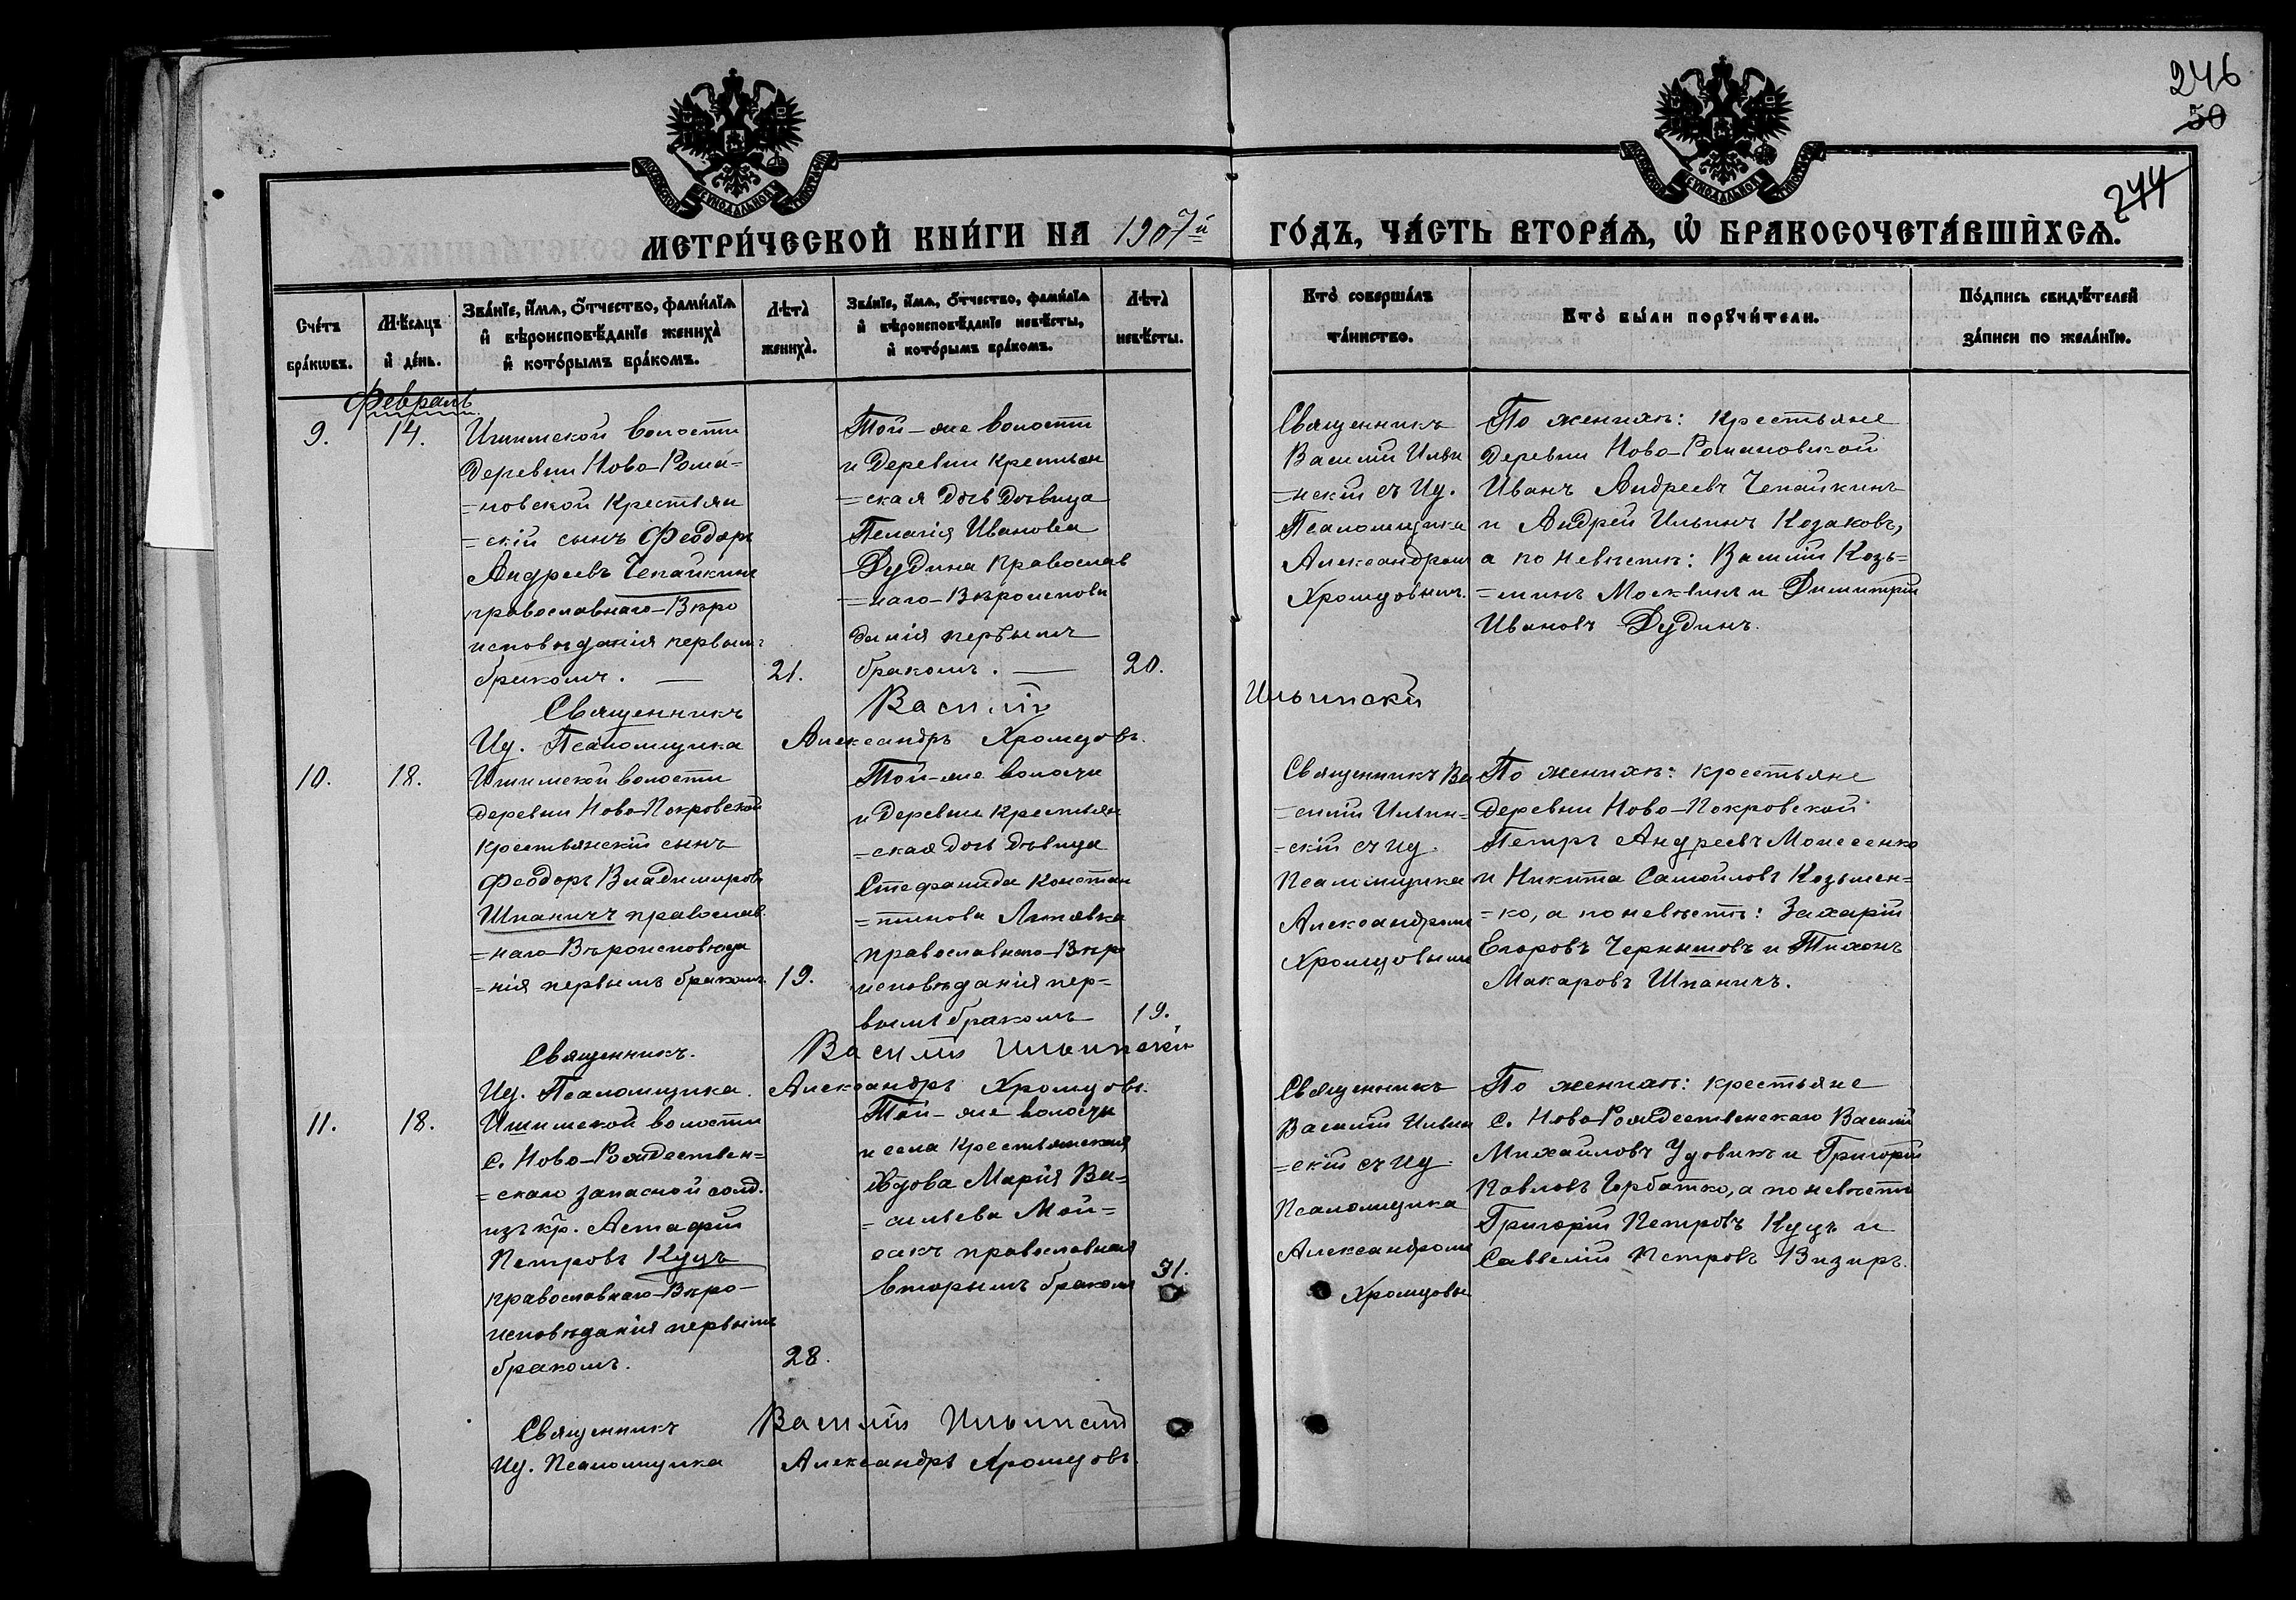 246
50
244
МЕТРИ́ЧЕСКОЙ КНИ́ГИ НА 1907й ГО́ДЪ, ЧА́СТЬ ВТОРА́Ѧ, Ѽ БРАКОСОЧЕТА́ВШИХСѦ.
Сче́тъ бра́кѡвъ.
Мѣ́сѧцъ и҆ де́нь.
Зва́нїе, и҆́мѧ, ѻ҆́тчество, фами́лїѧ
и҆ вѣроисповѣ́данїе жениха̀
и҆ кото́рымъ бра́комъ.
Лѣ́та жениха̀.
Зва́нїе, и҆́мѧ, ѻ҆́тчество, фами́лїѧ
и҆ вѣроисповѣ́данїе невѣ́сты,
и҆ кото́рымъ бра́комъ.
Лѣ́та невѣ́сты.
Кто̀ соверша́лъ
та́инство.
Кто̀ бы́ли порꙋчи́тели.
По́дпись свидѣ́телей
за́писи по жела́нїю.
Февраль
9.
14.
Ишимской волости
деревни Ново-Рома=
=новской Крестьян
=скій сынъ Феодоръ
Андреевъ Чепайкинъ
православнаго-Вѣро
исповѣданія первымъ
бракомъ. —
21.
Той-же волости
и деревни Крестьян
=ская дочь дѣвица
Пелагія Иванова
Дудина Православ
=наго-Вѣроисповѣ
данія первымъ
бракомъ. —
20.
Священникъ
Василій Ильи
=нскій съ Ид.
Псаломщика
Александромъ
Хромцовымъ.
По женихѣ: Крестьяне
деревни Ново-Романовской
Иванъ Андреевъ Чепайкинъ
и Андрей Ильинъ Козаковъ,
а по невѣстѣ: Василій Козь=
=минъ Москвинъ и Димитрій
Ивановъ Дудинъ.
Священникъ Василій Ильинскій
Ид. Псаломщика Александръ Хромцовъ.
10.
18.
Ишимской волости
деревни Ново-Покровской
крестьянскій сынъ
Феодоръ Владимировъ
Шпаничъ православ
=наго-Вѣроисповѣда
=нія первымъ бракомъ.
19.
Той-же волости
и деревни Крестьян
=ская дочь дѣвица
Стефанида Констан
=тинова
православнаго-Вѣро
исповѣданія пер=
вымъ бракомъ
19.
Священникъ Ва
=силій Ильин=
=скій съ Ид.
Псаломщика
Александромъ
Хромцовымъ
По женихѣ: крестьяне
деревни Ново-Покровской
Петръ Андреевъ Моисеенко
и Никита Самойловъ Козьмен=
=ко, а по невѣстѣ: Захарій
Егоровъ Чернышовъ и Тихонъ
Макаровъ Шпаничъ.
Священникъ. Василій Ильинскій
Ид. Псаломщика. Александръ Хромцовъ.
11.
18.
Ишимской волости
С. Ново-Рождествен=
=скаго запасной солд.
изъ кр. Астафій
Петровъ Куцъ
православнаго-Вѣро-
исповѣданія первымъ
бракомъ.
28.
Той-же волости
и села Крестьянская
Вдова Марія Ва=
=сильева Мой=
сакъ православная
вторымъ бракомъ
31.
Священникъ
Василій Ильин
=скій съ Ид.
Псаломщика
Александромъ
Хромцовы
По женихѣ: крестьяне
С. Ново-Рождественскаго Василій
Михайловъ Удовикъ и Григорій
Павловъ Горбатко, а по невѣстѣ
Григорій Петровъ Куцъ и
Савелій Петровъ Визиръ.
Священникъ Василій Ильинскій
Ид. Псаломщика Александръ Хромцовъ.